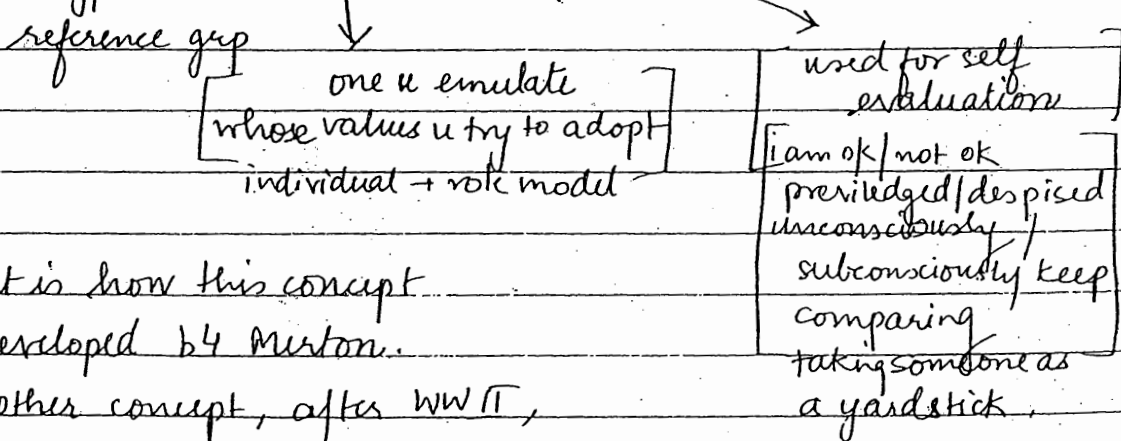 reference grp
one u emulate
whose values u try to adopt
individual → role model
used for self
evaluation
i am ok/not ok
previledged/despised
unconsciously/
subconsciously keep
comparing
taking someone as
a yardstick.
t is how this concept
eveloped b4 Merton.
other concept, after WW II,